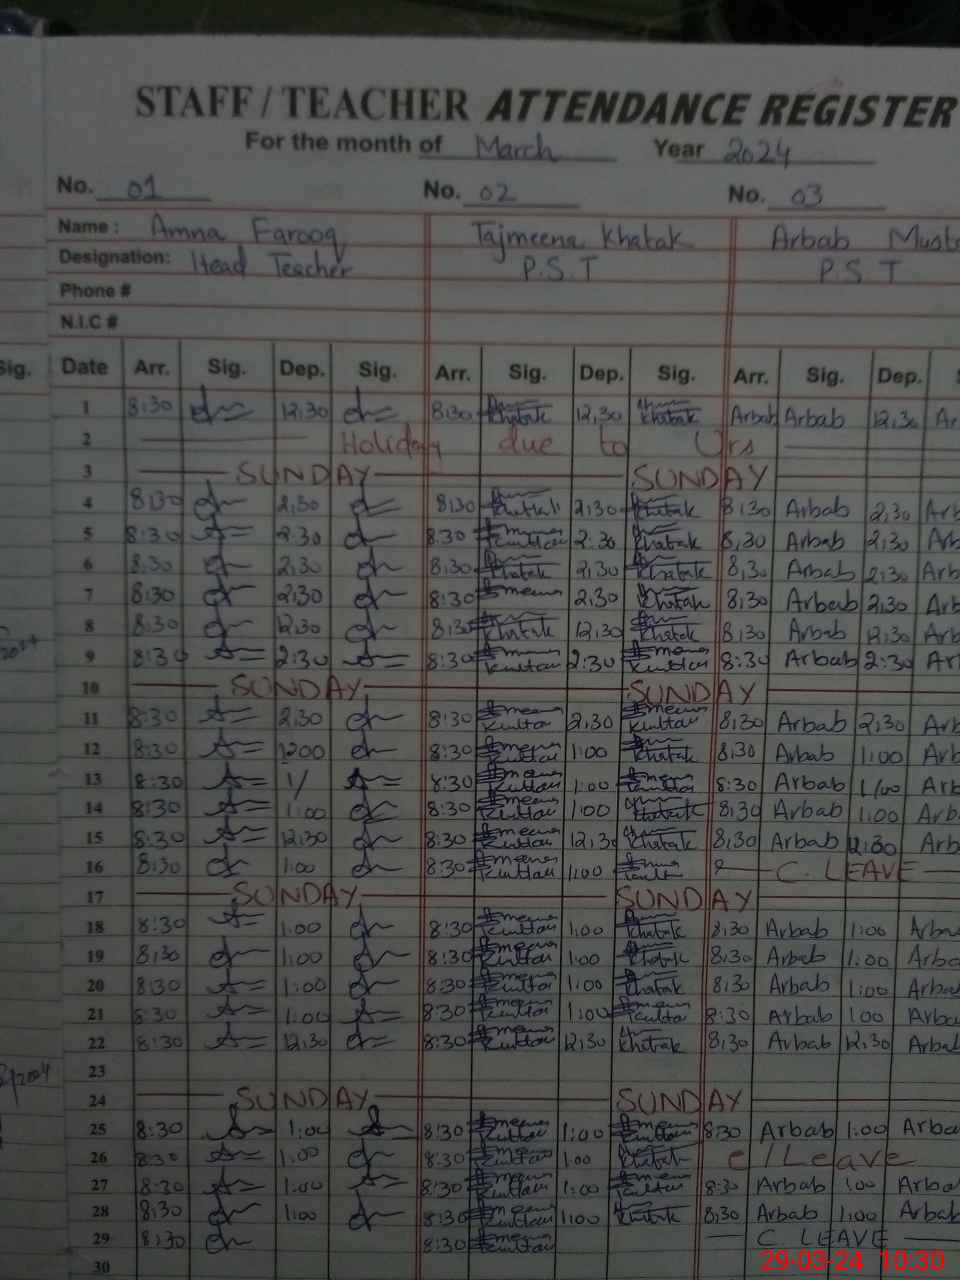 STAFF / TEACHER ATTENDANCE REGISTER
For the month of March Year 2024
No. 01 No. 02 No. 03
Name : Amna Farooq Tajmeena Khatak Arbab
Designation: Head Teacher P.S.T P.S T
Phone #
N.I.C #
Sig. Date Arr. Sig. Dep. Sig. Arr. Sig. Dep. Sig. Arr. Sig. Dep.
1 8:30 12,30 8:30 Khatak 12,30 Khatak Arbab Arbab 12,30 Ar
2 Holiday due to Urs
3 SUNDAY SUNDAY
4 8:30 2,30 8:30 2,30 Khatak 8,30 Arbab 2,30 Arb
5 8:30 2.30 8.30 2.30 Khatak 8,30 Arbab 2,30 Arb
6 8,30 2,30 8:30 Khatak 2,30 Khatak 8,30 Arbab 2,30 Arb
7 8:30 2,30 8:30 2,30 Khatak 8,30 Arbab 2,30 Arb
8 8:30 12,30 8:30 Khatak 12,30 Khatak 8,30 Arbab 12,30 Arb
9 8:30 2:30 8:30 2:30 8:30 Arbab 2:30 Ar
10 SUNDAY SUNDAY
11 8:30 2,30 8:30 2,30 8,30 Arbab 2,30 Arb
12 8:30 1200 8:30 1:00 Khatak 8,30 Arbab 1:00 Arb
13 8:30 1/ 8:30 1:00 8:30 Arbab 1:00 Arb
14 8:30 1:00 8:30 1:00 Khatak 8,30 Arbab 1:00 Arb
15 8:30 12,30 8:30 12,30 Khatak 8,30 Arbab 12:30 Arb
16 8:30 1:00 8:30 1:00 C. LEAVE
17 SUNDAY SUNDAY
18 8:30 1:00 8:30 1:00 Khatak 8,30 Arbab 1:00 Arba
19 8,30 1:00 8:30 1:00 Khatak 8,30 Arbab 1:00 Arba
20 8:30 1:00 8:30 1:00 Khatak 8,30 Arbab 1:00 Arba
21 8:30 1:00 8:30 1:00 8:30 Arbab 1:00 Arba
22 8:30 12,30 8:30 12,30 Khatak 8,30 Arbab 12,30 Arbal
23
24 SUNDAY SUNDAY
25 8:30 1:00 8:30 1:00 8:30 Arbab 1:00 Arba
26 8:30 1:00 8:30 1:00 Khatak c/Leave
27 8:30 1:00 8:30 1:00 8:30 Arbab 1:00 Arba
28 8,30 1:00 8:30 1:00 Khatak 8,30 Arbab 1:00 Arbab
29 8:30 8:30 C LEAVE
30
29-03-24 10:30